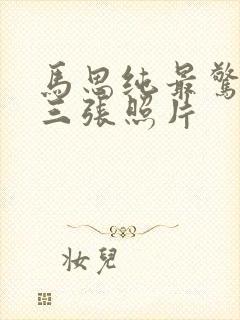 馬思純最驚
三張照片
妝兒